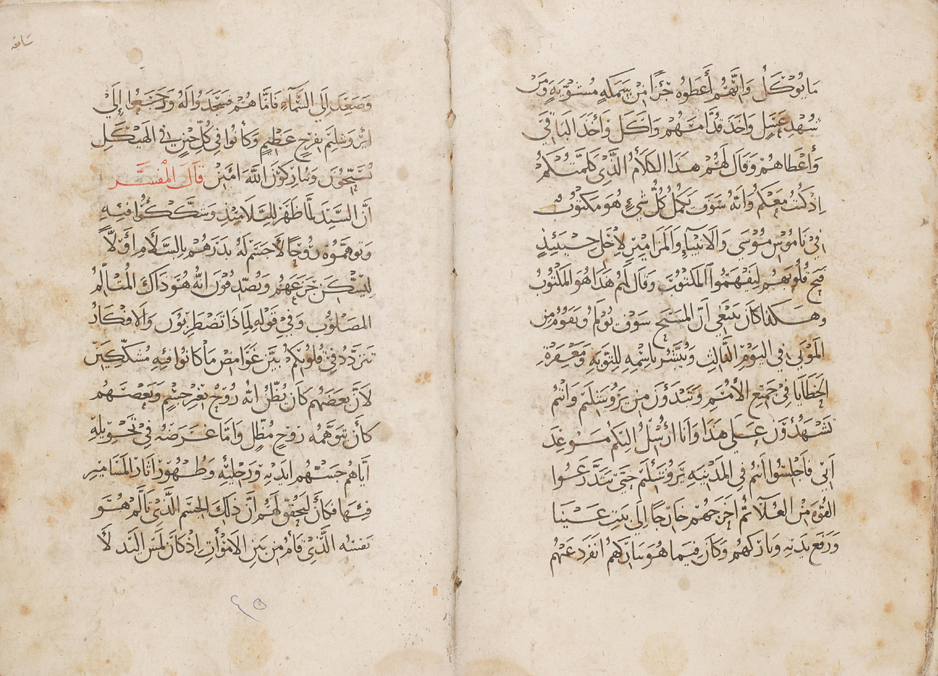 ما يوكل وانهم أعطوه جزا من سمكه مشويه ومن
شهد عسل واخذ قدامهم واكل واخذ الباقي
وأعطاهم وقال لهم هذا الكلام الذي كلمتكم
اذ كنت معكم وانه سوف يكمل كل شيء هو مكتوب
في ناموس موسى والانبياء والمزامير لاجلي حينيذ
فتح قلوبهم ليفهموا المكتوب وقال لهم هذا هو المكتوب
وهكذا كان ينبغي أن المسيح سوف يولم ويقوم من
الموتى في اليوم الثالث ويبشر باسمه للتوبه ومغفرة
الخطايا في جميع الأمم وتبتدؤن من يروشليم وانتم
تشهدون على هذا وانا ارسل اليكم موعد
ابي فاجلسوا انتم في المدينه يروشليم حتى تتدرعوا
القوه من العلا ثم أخرجهم خارجا إلى بيت عنيا
ورفع يديه وباركهم وكان فيما هو يباركهم انفرد عنهم
وصعد إلى السماء فاما هم فسجدوا له ورجعوا إلى
يروشليم بفرح عظيم وكانوا في كل حين في الهيكل
يسبحون ويباركون الله امين قال المفسر
ان السيد لما ظهر للتلاميذ وشككوا فيه
وتوهموه روحًا لا جسم له بدرهم بالسلام اولاً
ليسكن جزعهم ويصدقون انه هو ذاك المتالم
المصلوب وفي قوله لماذا تضطربون والافكار
تتردد في قلوبكم بين غوامض ما كانوا فيه مشككين
لان بعضهم كان يظن انه روح بغير جسم وبعضهم
كان يتوهمه روح مظل واما غرضه في تخويله
اياهم جسهم ايديه ورجليه وظهور اثار المسامير
فيها فكان ليحقق لهم ان ذلك الجسم الذي تالم هو
بعينه الذي قام من بين الاموات اذ كان لمس اليد لا